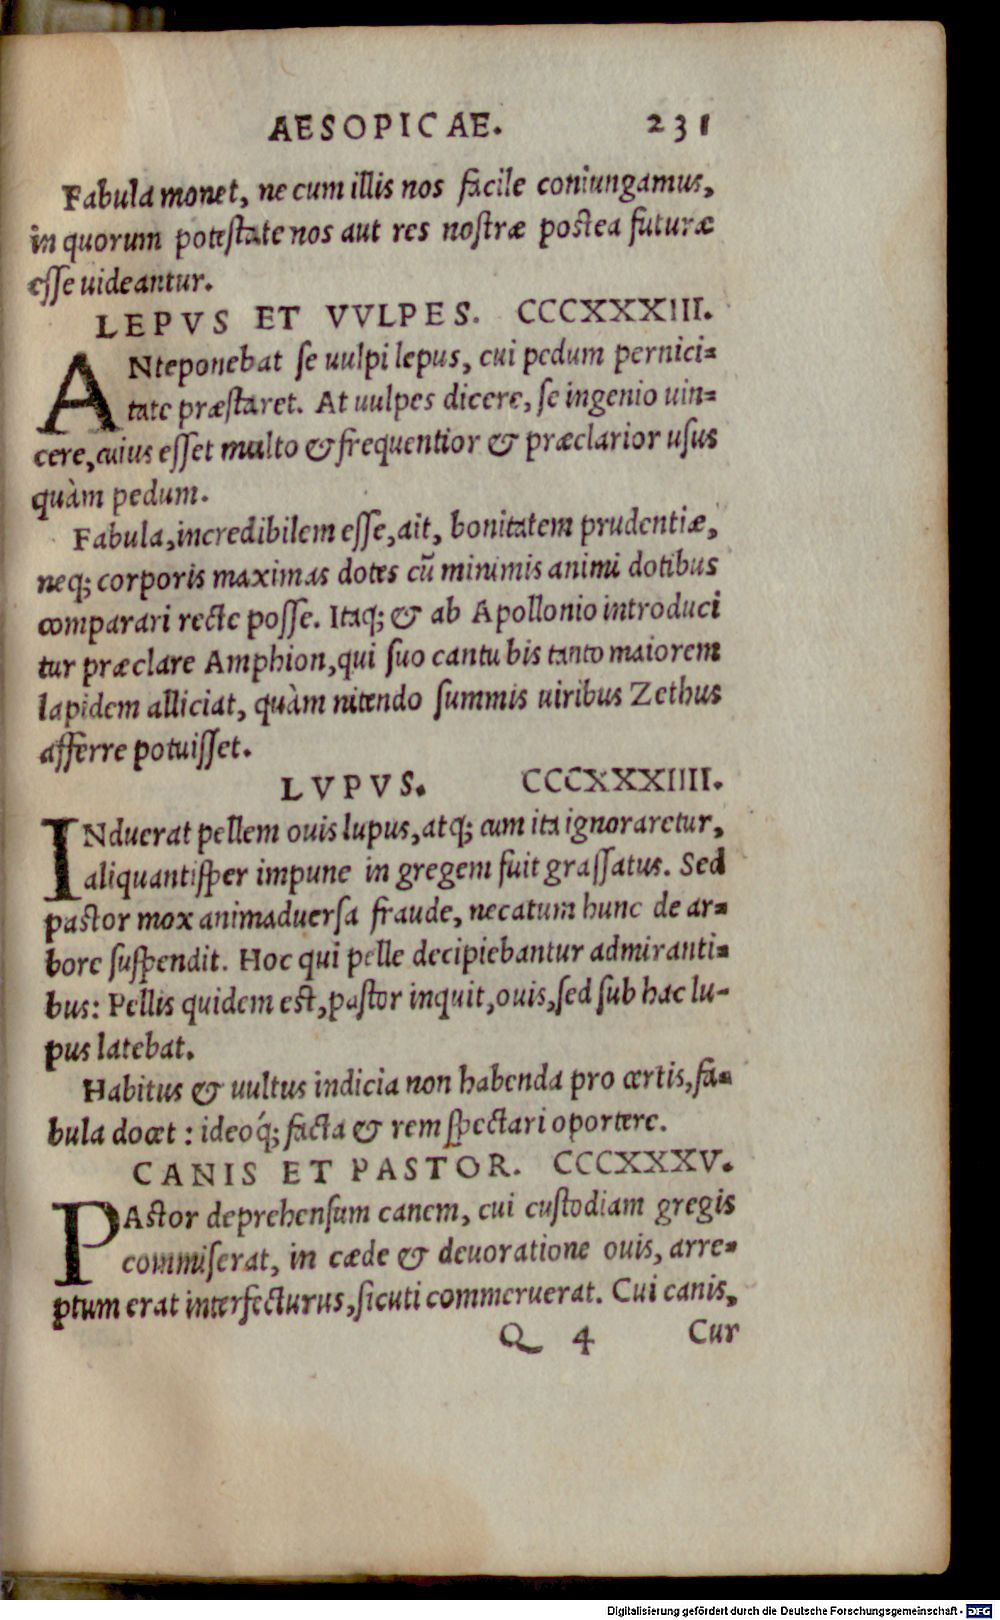 AESOPICAE. 231
Fabula monet, ne cum illis nos facile coniungamus,
in quorum potestate nos aut res nostræ postea futuræ
esse uideantur.
LEPVS ET VVLPES. CCCXXXIII.
ANteponebat se uulpi lepus, cui pedum pernici=
tate præstaret. At uulpes dicere, se ingenio uin=
cere, cuius esset multo & frequentior & præclarior usus
quàm pedum.
Fabula, incredibilem esse, ait, bonitatem prudentiæ,
neq; corporis maximas dotes cũ minimis animi dotibus
comparari recte posse. Itaq; & ab Apollonio introduci
tur præclare Amphion, qui suo cantu bis tanto maiorem
lapidem alliciat, quàm nitendo summis uiribus Zethus
afferre potuisset.
LVPVS. CCCXXXIIII.
INduerat pellem ouis lupus, atq; cum ita ignoraretur,
aliquantisper impune in gregem fuit grassatus. Sed
pastor mox animaduersa fraude, necatum hunc de ar=
bore suspendit. Hoc qui pelle decipiebantur admiranti=
bus: Pellis quidem est, pastor inquit, ouis, sed sub hac lu-
pus latebat.
Habitus & uultus indicia non habenda pro certis, fa=
bula docet : ideoq́; facta & rem spectari oportere.
CANIS ET PASTOR. CCCXXXV.
PAstor deprehensum canem, cui custodiam gregis
commiserat, in cæde & deuoratione ouis, arre=
ptum erat interfecturus, sicuti commeruerat. Cui canis,
Q 4 Cur
Digitalisierung gefördert durch die Deutsche Forschungsgemeinschaft - DFG